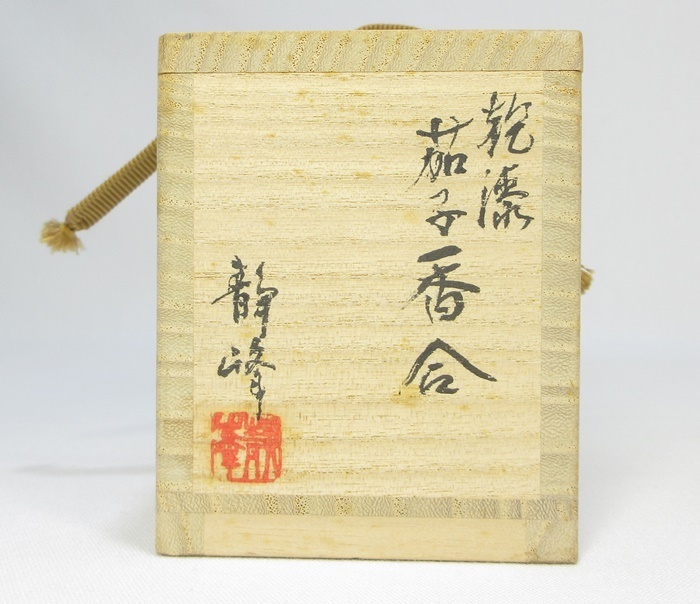 乾漆
茄子香合
静峰